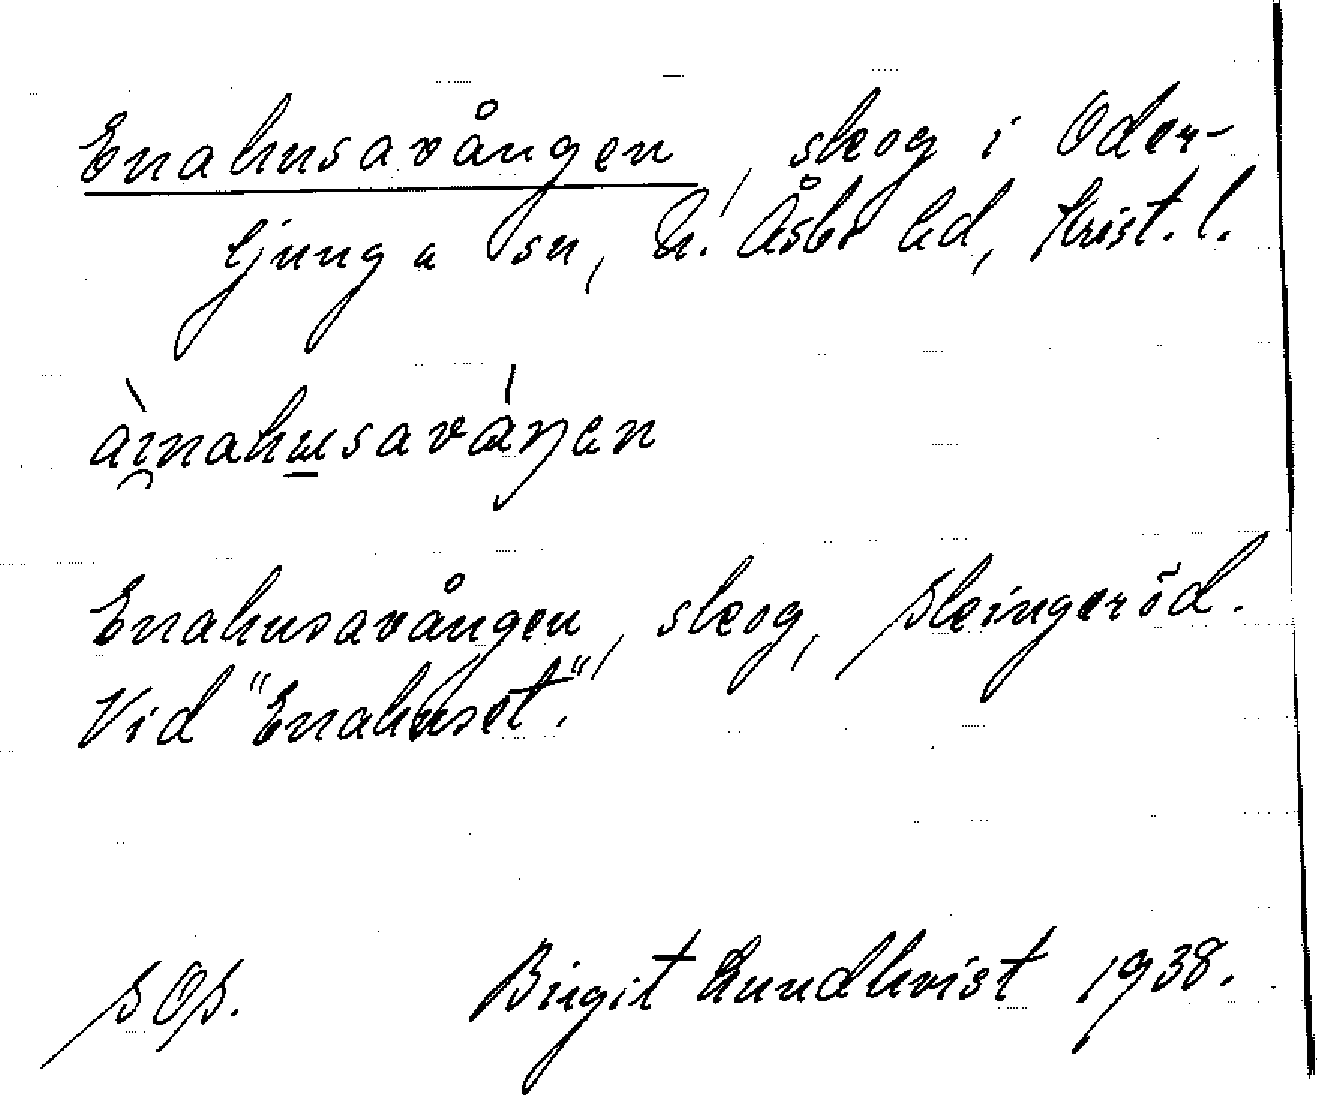 Enahusavången, skog i Oder-
ljunga sn, N. Åsbo hd, Krist. l.
àinahusaváŋen
Enahusavången, skog, Skingeröd.
Vid "Enahuset".
SOS. Birgit Lundkvist 1938.